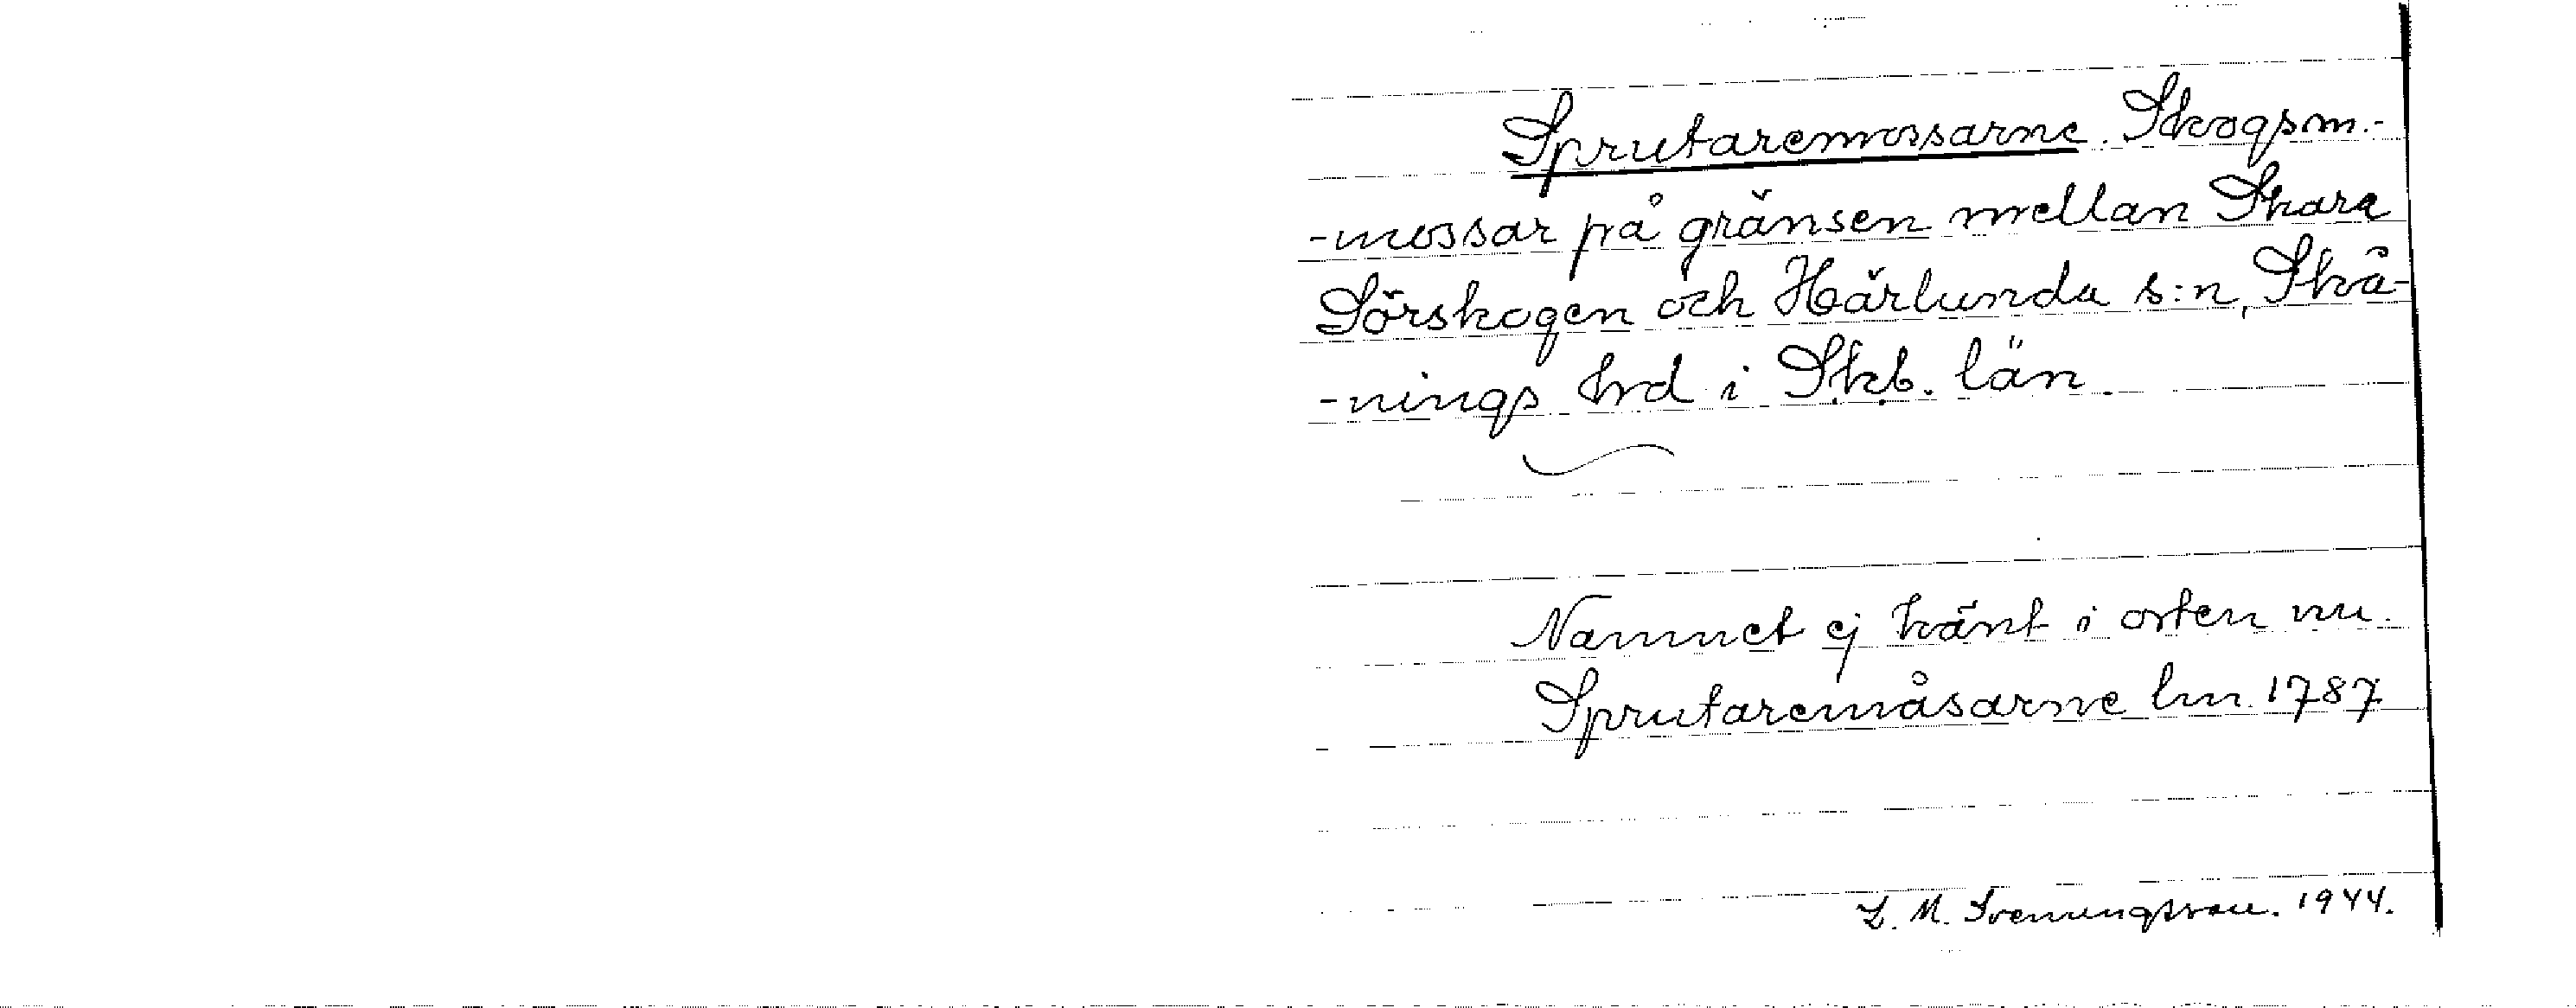 Sprutaremossarne. Skogsm.-
-mossar på gränsen mellan Skara
Sörskogen och Härlunda s:n, Skå-
-nings hrd i Skb. län.
Namnet ej känt i orten nu.
Sprutaremåsarne lm. 1787
S. M. Svenungsson. 1944.